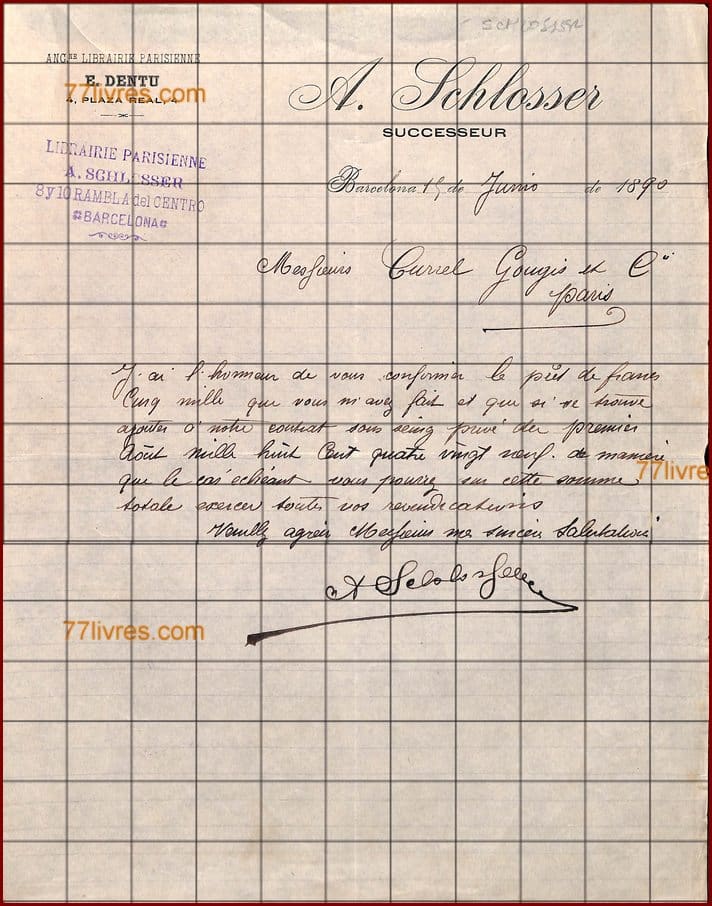 SCHLOSSER
ANC.NE LIBRAIRIE PARISIENNE
E. DENTU
77livres.com
4, PLAZA REAL, 4
A. Schlosser
SUCCESSEUR
LIBRAIRIE PARISIENNE
A. SCHLOSSER
8 y 10 RAMBLA del CENTRO
BARCELONA
Barcelona 15 de Junio de 1890
Messieurs Curel Gougis et Cie
Paris
J'ai l'honneur de vous conformer le prêt de francs
Cinq mille que vous m'avez fait et que si ve trouve
ajouter à notre contrat sous seing privé du premier
Août mille huit Cent quatre vingt neuf. de manière
que le cas échéant vous pourrez sur cette somme
totale exercer toutes vos revendications
Veuillez agréer Messieurs mes sincères Salutations
A Schlosser
77livres
77livres.com